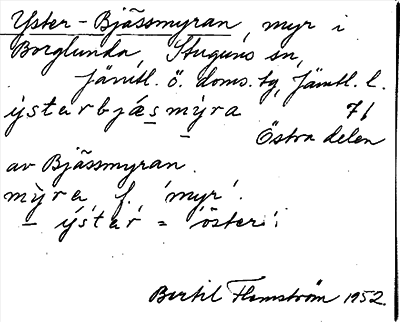 Yster-Bjässmyran, myr i
Borglunda, Stuguns sn,
Jämtl. ö. doms. tg, Jämtl. l.
ýstarbjæsmỳra 71
Östra delen
av Bjässmyran.
mỳra f. 'myr'.
- ýstar = 'öster'.
Bertil Flemström 1952.